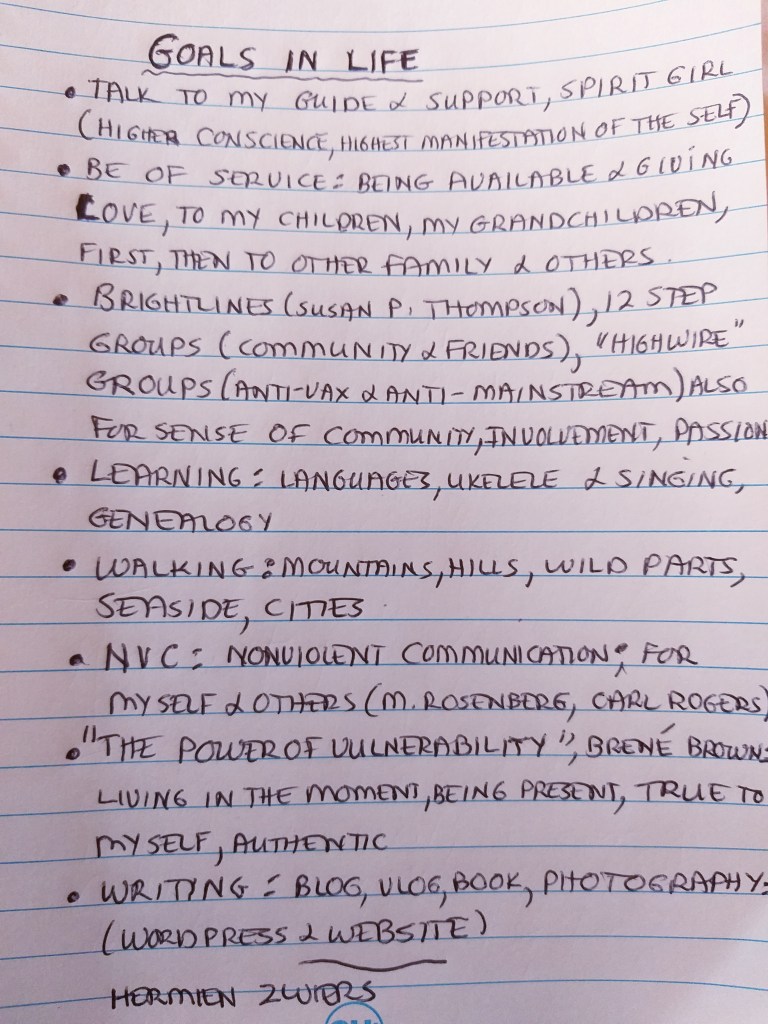 GOALS IN LIFE
• TALK TO MY GUIDE & SUPPORT, SPIRIT GIRL
(HIGHER CONSCIENCE, HIGHEST MANIFESTATION OF THE SELF)
• BE OF SERVICE: BEING AVAILABLE & GIVING
LOVE, TO MY CHILDREN, MY GRANDCHILDREN,
FIRST, THEN TO OTHER FAMILY & OTHERS.
• BRIGHTLINES (SUSAN P. THOMPSON), 12 STEP
GROUPS (COMMUNITY & FRIENDS), "HIGHWIRE"
GROUPS (ANTI-VAX & ANTI-MAINSTREAM) ALSO
FOR SENSE OF COMMUNITY, INVOLVEMENT, PASSION
• LEARNING: LANGUAGES, UKELELE & SINGING,
GENEALOGY
• WALKING: MOUNTAINS, HILLS, WILD PARTS,
SEASIDE, CITIES.
• NVC: NONVIOLENT COMMUNICATION; FOR
MYSELF & OTHERS (M. ROSENBERG, CARL ROGERS)
• "THE POWER OF VULNERABILITY", BRENÉ BROWN:
LIVING IN THE MOMENT, BEING PRESENT, TRUE TO
MYSELF, AUTHENTIC
• WRITING: BLOG, VLOG, BOOK, PHOTOGRAPHY:
(WORDPRESS & WEBSITE)
HERMIEN ZWIERS